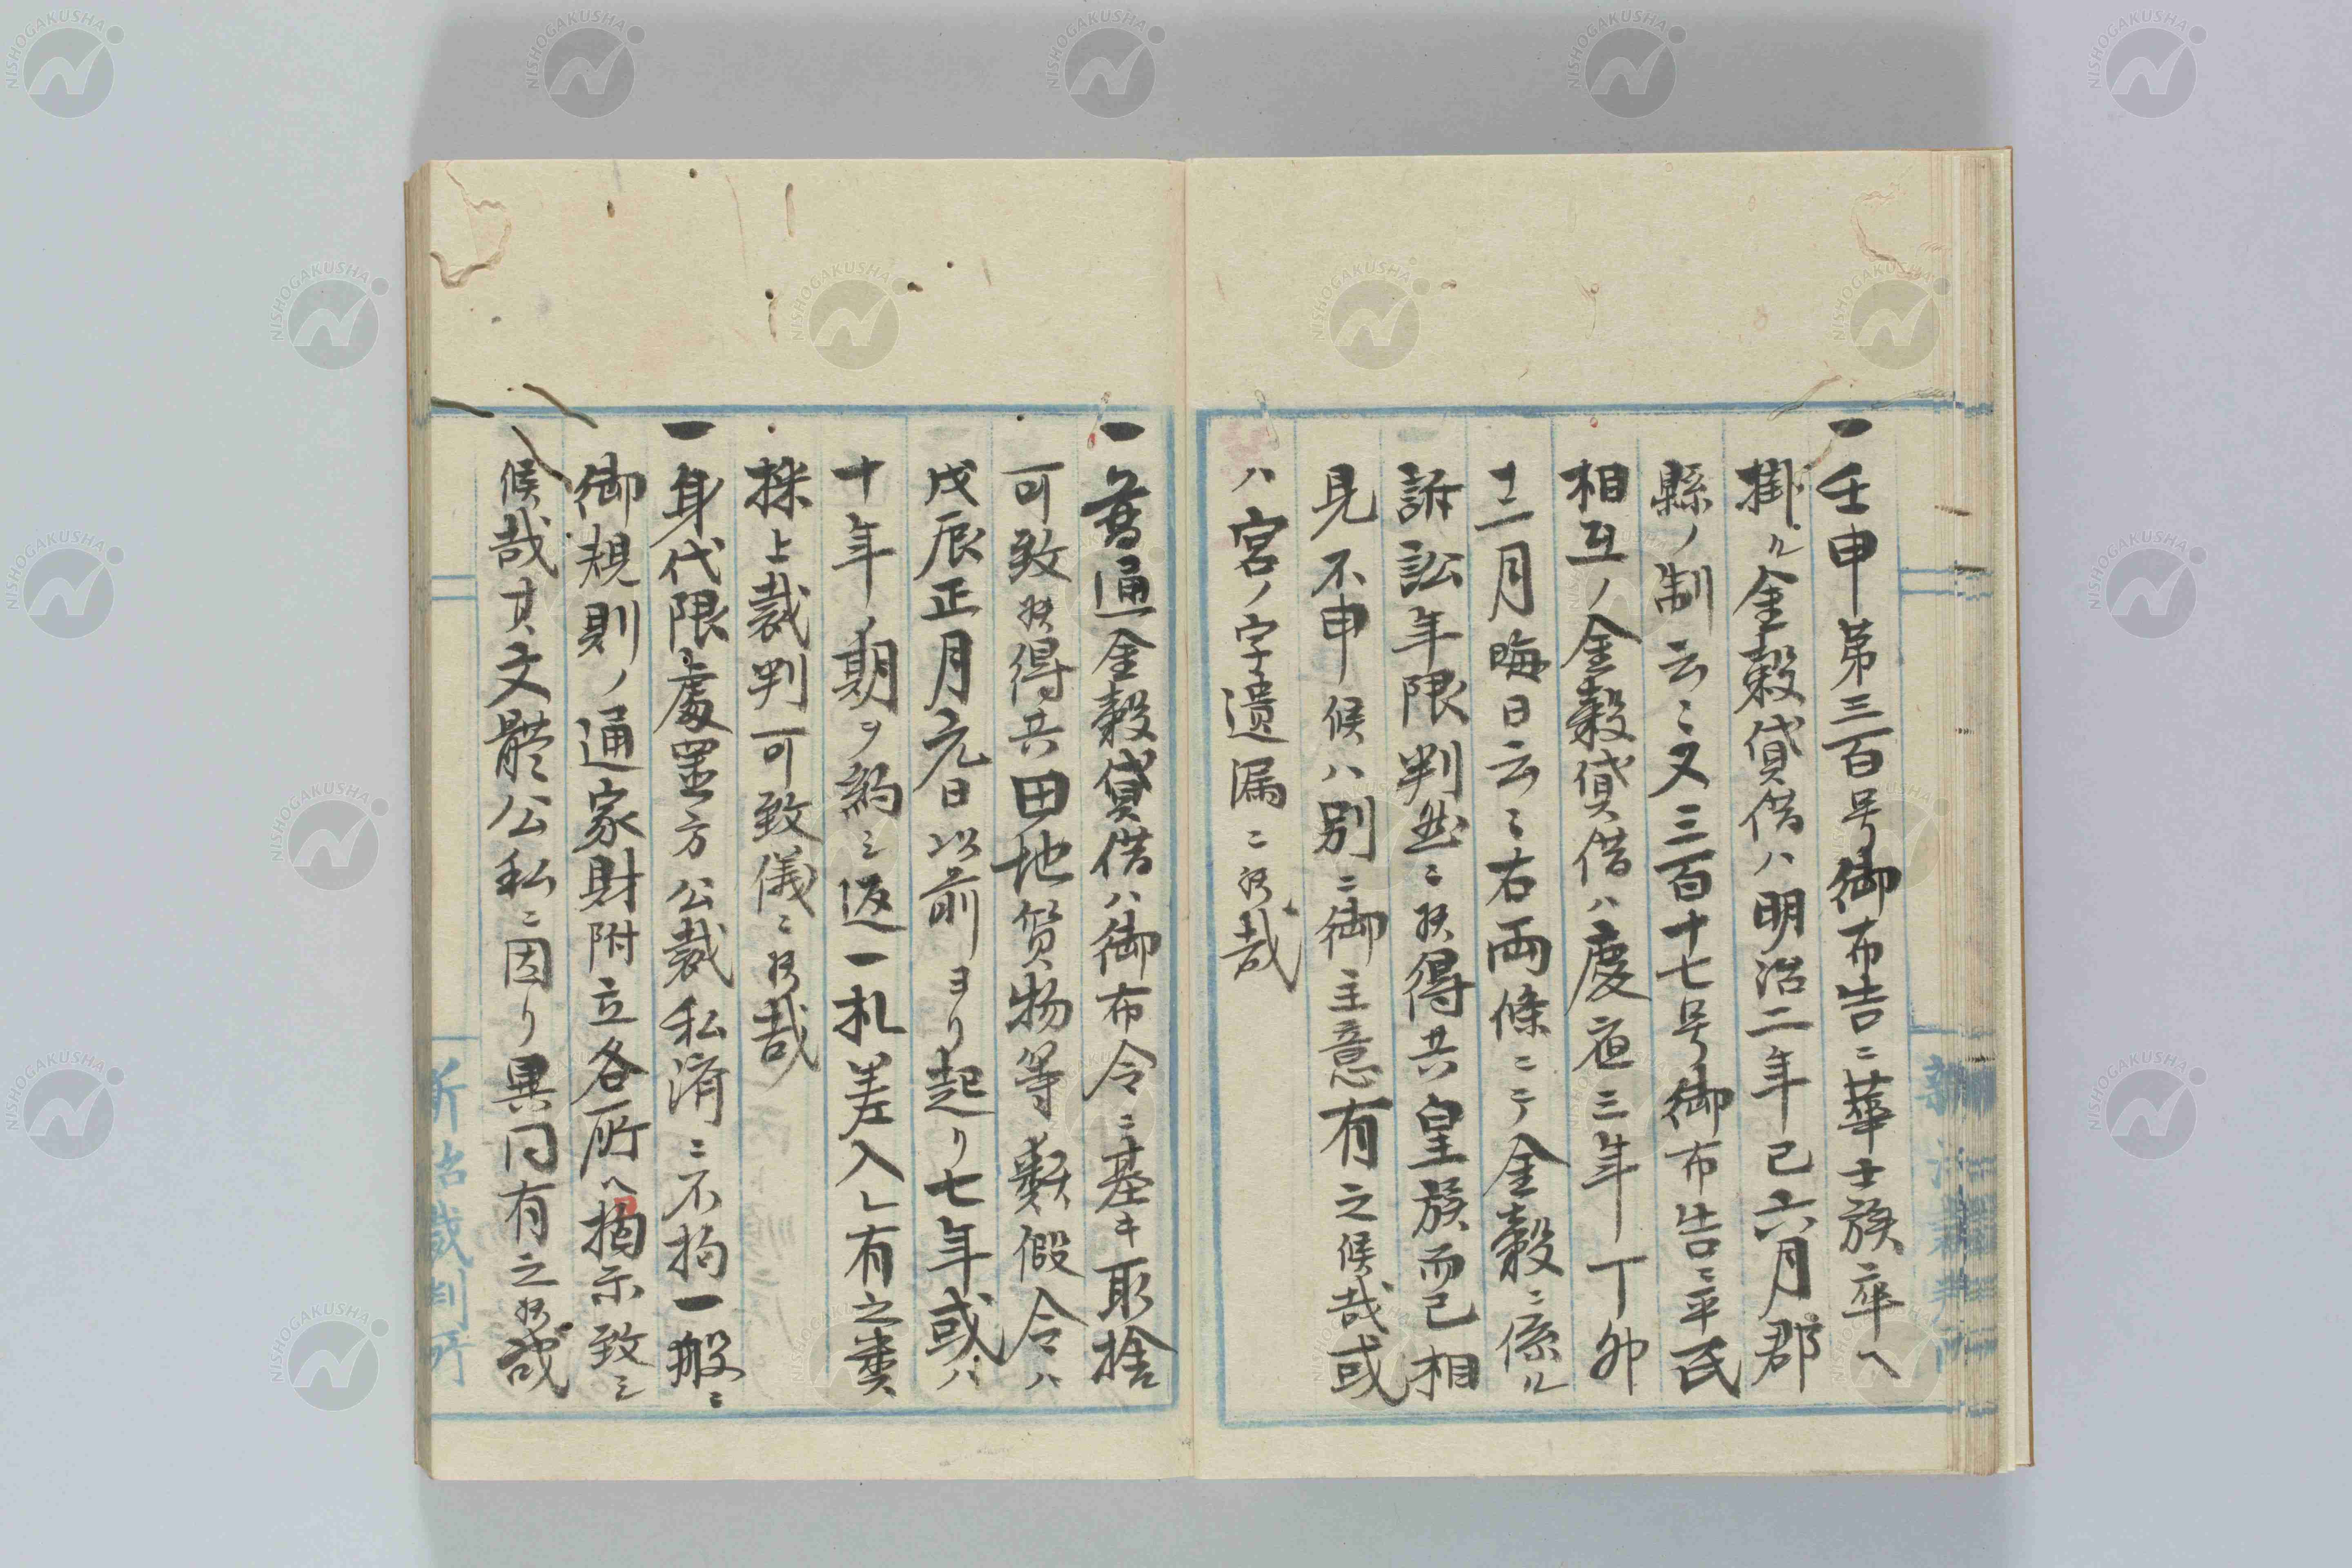 一壬申第三百号御布告ニ華士族卒ヘ
掛ル金穀貸借ハ明治二年己六月郡
縣ノ制云ミ又三百十七号御布告ニ平民
相互ノ金穀貸借ハ慶應三年丁卯
十二月晦日云ミ右両條ニテ金穀ニ係ル
訴訟年限判然ニ候得共皇族而已相
見不申候ハ別ニ御主意有之候哉或
ハ宮ノ字遺漏ニ候哉
一普通金穀貸借ハ御布令ニ基キ取捨
可致候得共田地質物等ノ類假令ハ
戊辰正月元日以前ヨリ起リ七年或ハ
十年ノ期ヲ約シ返一札差入レ有之類
採上裁判可致儀ニ候哉
一身代限處置方公裁私済ニ不拘一般ニ
御規則ノ通家財附立各所ヘ掲示致シ
候哉其文體公私ニ因リ異同有之候哉
新治裁判所
NISHOGAKUSHA